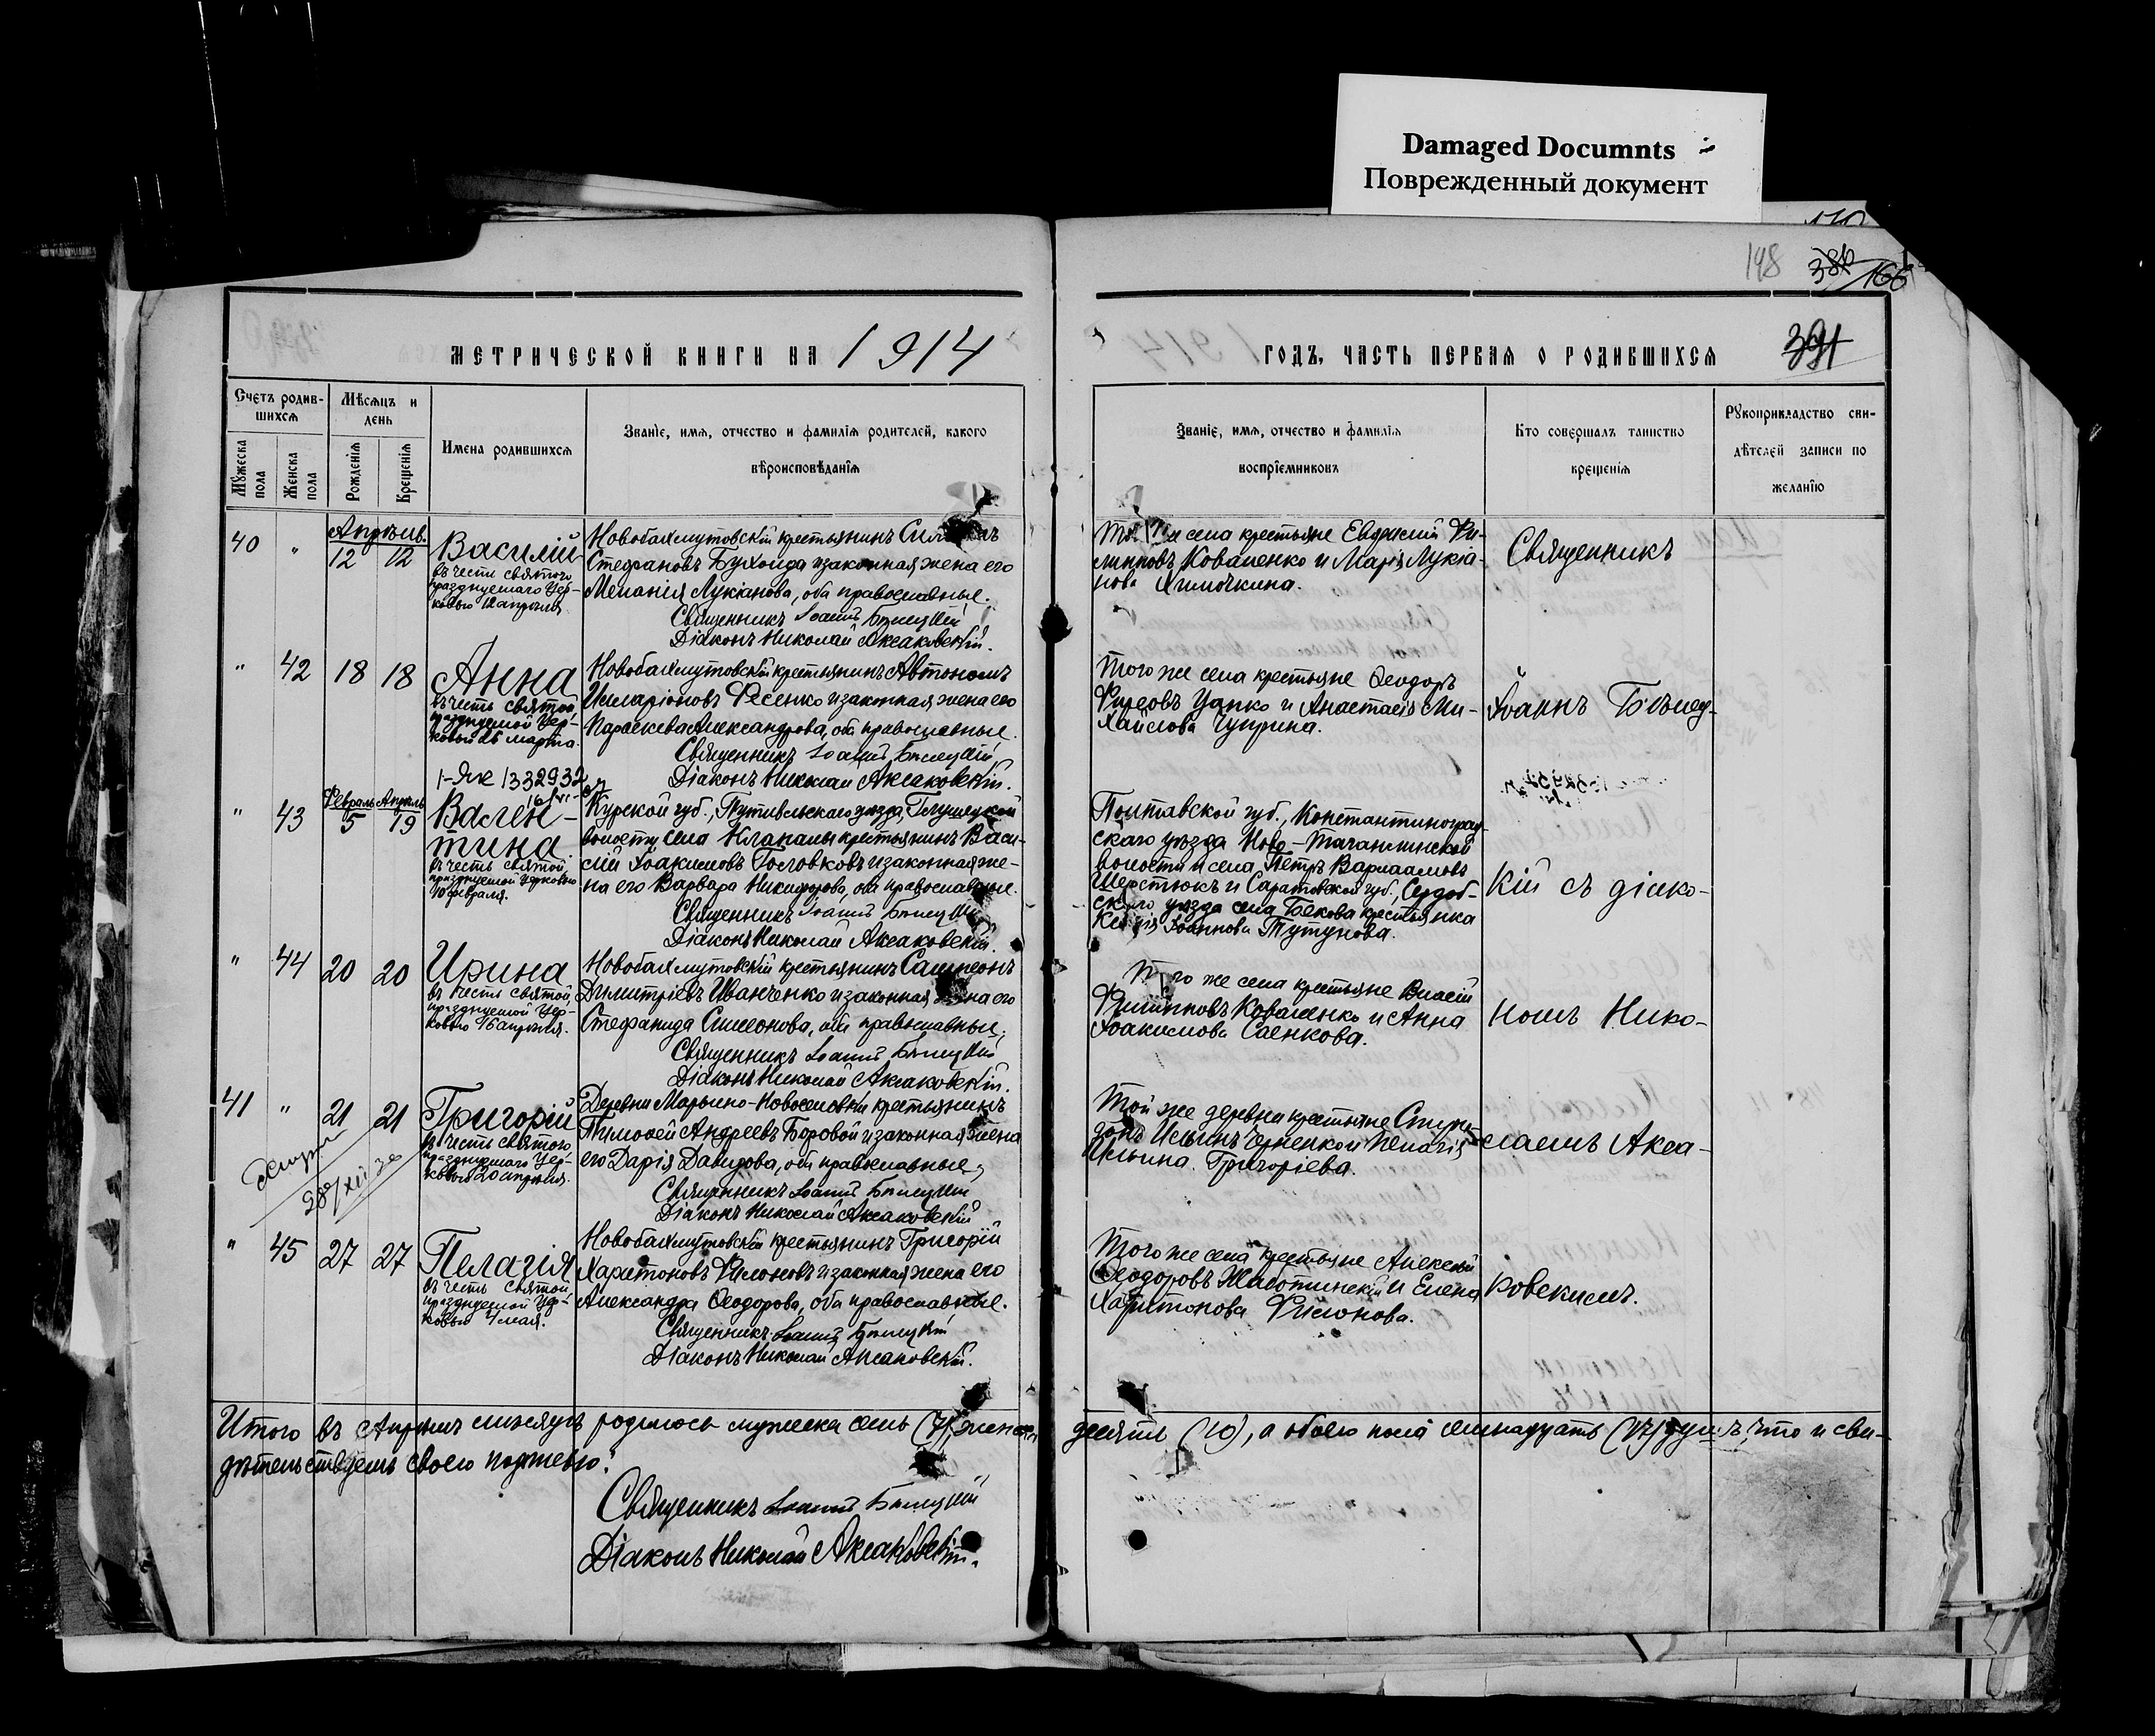 Damaged Documnts
Поврежденный документ
148
166
МЕТРИЧЕСКОЙ КНИГИ НА 1914
ГОДЪ, ЧАСТЬ ПЕРВАЯ О РОДИВШИХСЯ
391
Счетъ родив-
шихся
Мужеска пола
Женска пола
Мѣсяцъ и
день
Рожденія
Крещенія
Имена родившихся
Званіе, имя, отчество и фамилія родителей, какого
вѣроисповѣданія
Званіе, имя, отчество и фамилія
воспріемниковъ
Кто совершалъ таинство
крещенія
Рукоприкладство сви-
дѣтелей записи по
желанію
Апрѣль.
40 " 12 12
Василій
въ честь святого
празднуемаго Цер-
ковью 12 апрѣля.
Новобахмутовскій крестьянинъ
Стефановъ Бухонда и законная жена его
Меланія Лукіанова, оба православные.
Священникъ Іоаннъ Бѣлецкій
Діаконъ Николай Аксаковскій.
же села крестьяне Евдокимъ Фи-
липповъ Коваленко и Марія Лукіа-
нова Химочкина.
" 42 18 18
Анна
въ честь святой
празднуемой Цер-
ковью 26 марта.
Новобахмутовскій крестьянинъ Автономъ
Иларіоновъ Фесенко и законная жена его
Параскева Александрова, оба православные.
Священникъ Іоаннъ Бѣлецкій
Діаконъ Николай Аксаковскій.
Того же села крестьяне Ѳеодоръ
Фирсовъ Цапко и Анастасія Ми-
хайлова Чуприна.
1-ЯК 1332932
Февраль Апрѣль
" 43 5 19
Вален-
тина
въ честь святой
празднуемой Церковью
10 февраля.
Курской губ., Путивльскаго уѣзда, Глушецкой
волости, села крестьянинъ Васи-
лій Іоакимовъ Головковъ и законная же-
на его Варвара Никифорова, оба православные.
Священникъ Іоаннъ Бѣлецкій
Діаконъ Николай Аксаковскій.
Полтавской губ., Константиноград-
скаго уѣзда Ново-Тагамлинской
волости и села Петръ Варлаамовъ
Шерстюкъ и Саратовской губ., Сердоб-
скаго уѣзда села Бекова крестьянка
Іоаннова Тутунова.
" 44 20 20
Ирина
въ честь святой,
празднуемой Цер-
ковью 16 апрѣля.
Новобахмутовскій крестьянинъ Сампсонъ
Димитріевъ Иванченко и законная жена его
Стефанида Симеонова, оба православные.
Священникъ Іоаннъ Бѣлецкій
Діаконъ Николай Аксаковскій.
Того же села крестьяне Власій
Филипповъ Коваленко и Анна
Іоакимова Саенкова.
41 " 21 21
Григорій
въ честь святого
празднуемаго Цер-
ковью 20 апрѣля.
Деревни Марьино-Новоселовки крестьянинъ
Тимоѳей Андреевъ Боровой и законная жена
его Дарія Давидова, оба православные.
Священникъ Іоаннъ Бѣлецкій
Діаконъ Николай Аксаковскій
Той же деревни крестьяне Спири-
донъ Ильинъ и Пелагія
Ильина Григоріева.
" 45 27 27
Пелагія
въ честь святой,
празднуемой Цер-
ковью 4 мая.
Новобахмутовскій крестьянинъ Григорій
Харитоновъ Филоновъ и законная жена его
Александра Ѳеодорова, оба православные.
Священникъ Іоаннъ Бѣлецкій
Діаконъ Николай Аксаковскій.
Того же села крестьяне Алексѣй
Ѳеодоровъ Жаботинскій и Елена
Харитонова Филонова.
Священникъ
Іоаннъ Бѣлец-
кій съ діако-
номъ Нико-
лаемъ Акса-
ковскимъ.
Итого въ Апрѣлѣ мѣсяцѣ родилось мужеска семь (7), женска десять (10), а обоего пола семнадцать (17) душъ, что и сви-
дѣтельствуемъ своею подписью:
Священникъ Іоаннъ Бѣлецкій
Діаконъ Николай Аксаковскій.